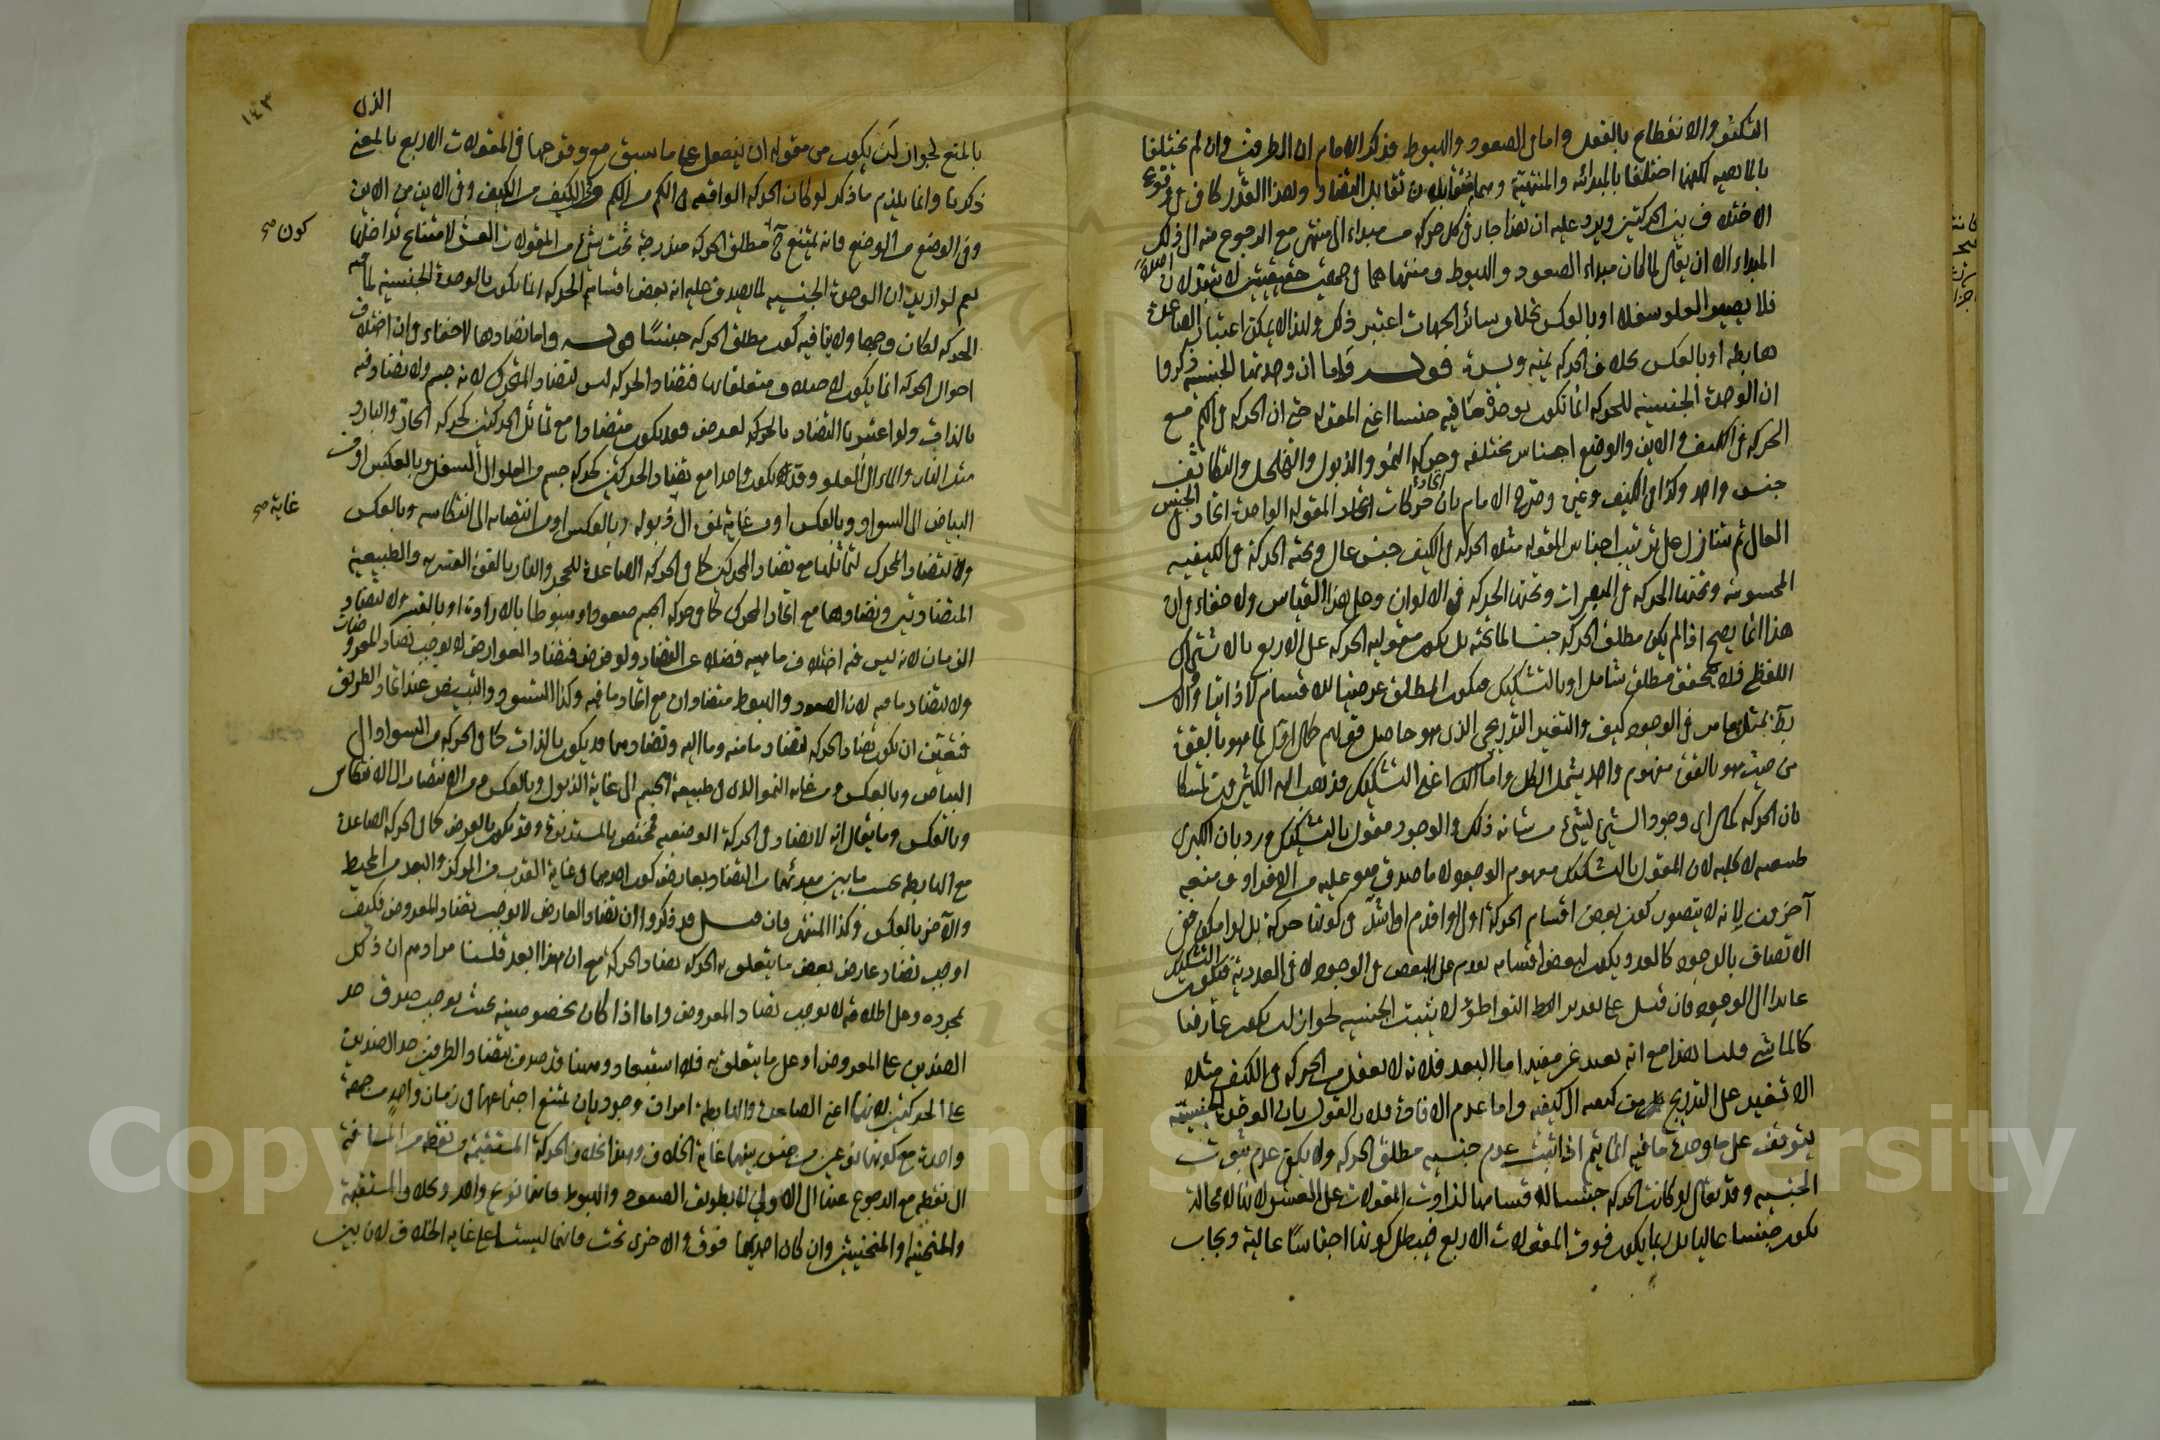 التكثر والانقطاع بالفعل واما في الصعود والهبوط فذكر الامام ان الطرفين وان لم يختلفا
بالماهية لكنهما اختلفا بالمبدائية والمنتهية وهما متقابلان تقابل التضاد وهذا القدر كاف في وقوع
الاختلاف بين الحركتين ويرد عليه ان هذا جار في كل حركة من مبداء الى منتهى مع الرجوع منه الى ذلك
المبداء الا ان يقال لما كان مبداء الصعود والهبوط ومنتهاهما في جهتين حقيقيتين لا يتبدلان اصلا
فلا يصير العلو سفلا او بالعكس بخلاف سائر الجهات اعتبر ذلك ولهذا لا يمكن اعتبار الصاعدة
هابطة او بالعكس بخلاف الحركة يمنة ويسرة قوله واما ان وحدتها الجنسية ذكروا
ان الوحدة الجنسية للحركة انما تكون بوحدة ما فيه جنسا اعني المقولة حتى ان الحركة في الكم مع
الحركة في الكيف والاين والوضع اجناس مختلفة وحركة النمو والذبول والتخلخل والتكاثف
جنس واحد وكذا في الكيف وغيره وصرح الامام بان اتحاد حركات المقولة الواحدة اتحاد في الجنس
العالي ثم يتنازل على ترتيب اجناس المقولة مثلا الحركة في الكيف جنس عال وتحته الحركة في الكيفية
المحسوسة وتحتها الحركة في المبصرات وتحتها الحركة في الالوان وعلى هذا القياس ولا خفاء في ان
هذا انما يصح اذا لم يكن مطلق الحركة جنسا لما تحته بل يكون مقولية الحركة على الاربع بالاشتراك
اللفظي فلا يتحقق مطلق شامل او بالتشكيك فيكون المطلق عرضيا للاقسام لا ذاتيا والاول
من حيث هو بالقوة مفهوم واحد يشمل الكل واما الثاني اعني التشكيك فذهب اليه الكثيرون تمسكا
بان الحركة كمال اي وجود الشيء لشيء من شانه ذلك والوجود مقول بالتشكيك ورد بان الكبرى
طبيعية لا كلية لان المقول بالتشكيك مفهوم الوجود لا ما صدق هو عليه من الافراد ومنعه
آخرون لانه لا يتصور كون بعض اقسام الحركة اولى او اقدم او اشد في كونها حركة بل لو امكن ففي
الاتصاف بالوجود كالعدد يكون لبعض اقسامه تقدم على البعض في الوجود لا في العددية فيكون التشكيك
عائدا الى الوجود فان قيل على تقدير التواطؤ لا يثبت الجنسية لجواز ان يكون عارضا
كالماشي قلنا هذا مع انه بعيد غير مفيد اما البعد فلانه لا يعقل من الحركة في الكيف مثلا
الا تغير على التدريج من كيفية الى كيفية واما عدم الافادة فلان القول بان الوحدة الجنسية
يتوقف على وحدة ما فيه انما يتم اذا ثبت عدم جنسية مطلق الحركة ولا يكفي عدم ثبوت
الجنسية وقد يقال لو كانت الحركة جنسا لاقسامها لزادت المقولات على العشر لانها لا محالة
يكون جنسا عاليا بل ربما يكون فوق المقولات الاربع فيبطل كونها اجناسا عالية ويجاب
١٤٣
بالمنع لجواز ان يكون من مقولة ان ينفعل على ما سبق مع وقوعها في المقولات الاربع بالمعنى الذي
ذكرنا وانما يلزم ما ذكر لو كان الحركة الواقعة في الكم من الكم وفي الكيف من الكيف وفي الاين من الاين
وفي الوضع من الوضع فانه يمتنع ح كون مطلق الحركة مندرجة تحت شيء من المقولات العشر لامتناع تداخلها
نعم لو اريد ان الوحدة الجنسية لما يصدق عليه انه بعض اقسام الحركة انما تكون بالوحدة الجنسية لما فيه
الحركة لكان وجها ولا ينافيه كون مطلق الحركة جنسا قوله واما تضادها لا خفاء في ان اختلاف
احوال الحركة انما يكون لاختلاف متعلقاتها فتضاد الحركة ليس لتضاد المتحرك لانه جسم ولا تضاد فيه
بالذات ولو اعتبرنا التضاد بالعرض فقد يكون متضادا مع تماثل الحركتين كحركة الحار والبارد
مثل النار والماء الى العلو وقد يكون واحدا مع تضاد الحركتين كحركة جسم من العلو الى السفل وبالعكس او من
البياض الى السواد وبالعكس او من غاية نموه الى ذبوله وبالعكس او من انتصابه الى انتكاسه وبالعكس
ولا لتضاد المحرك لتماثلهما مع تضاد المحركين كما في الحركة الصاعدة للحجر والنار بالقوة القسرية والطبيعية
المتضادتين وتضادهما مع اتحاد المحرك كما في حركة الجسم صعودا وهبوطا بالارادة او بالقسر ولا لتضاد
الزمان لانه ليس فيه اختلاف ماهية فضلا عن التضاد ولو فرض فتضاد العوارض لا يوجب تضاد المعروضات
ولا لتضاد ما فيه لان الصعود والهبوط متضادان مع اتحاد ما فيه وكذا التسود والتبيض عند اتحاد الطريق
فتعين ان يكون تضاد الحركة لتضاد ما منه وما اليه وتضادهما قد يكون بالذات كما في الحركة من السواد الى
البياض وبالعكس ومن غاية النمو الذي في طبيعة الجسم الى غاية الذبول وبالعكس ومن الانتصاب الى الانتكاس
وبالعكس وما يقال انه لا تضاد في الحركة الوضعية فمختص بالمستديرة وقد يكون بالعرض كما في الحركة الصاعدة
مع الهابطة بحسب ما بين مبدئهما من التضاد بعارض كون احدهما في غاية القرب من المركز والبعد من المحيط
والآخر بالعكس وكذا المنتهى فان قيل قد ذكروا ان تضاد العارض لا يوجب تضاد المعروض فكيف
اوجب تضاد عارض بعض ما يتعلق به الحركة تضاد الحركة مع ان هذا ابعد قلنا مرادهم ان ذلك
بمجرده وعلى اطلاقه لا يوجب تضاد المعروض واما اذا كان بخصوصيته بحيث يوجب صدق حد
الضدين على المعروض او على ما يتعلق به فلا استبعاد وههنا قد صدق بتضاد الطرفين حد الضدين
على الحركتين لانهما اعني الصاعدة والهابطة امران وجوديان يمتنع اجتماعهما في زمان واحد من جهة
واحدة مع كونهما نوعين من جنس بينهما غاية الخلاف وهذا بخلاف الحركة المستقيمة من نقطة من المسافة
الى نقطة مع الرجوع عنها الى الاولى لا بطريق الصعود والهبوط فانهما نوع واحد وبخلاف المستقيمة
والمنحنية او المنحنيتين وان كان احديهما فوق والاخرى تحت فانهما ليستا على غاية الخلاف لان بين
كون صح
غاية صح
Copyright © King Saud University
1957